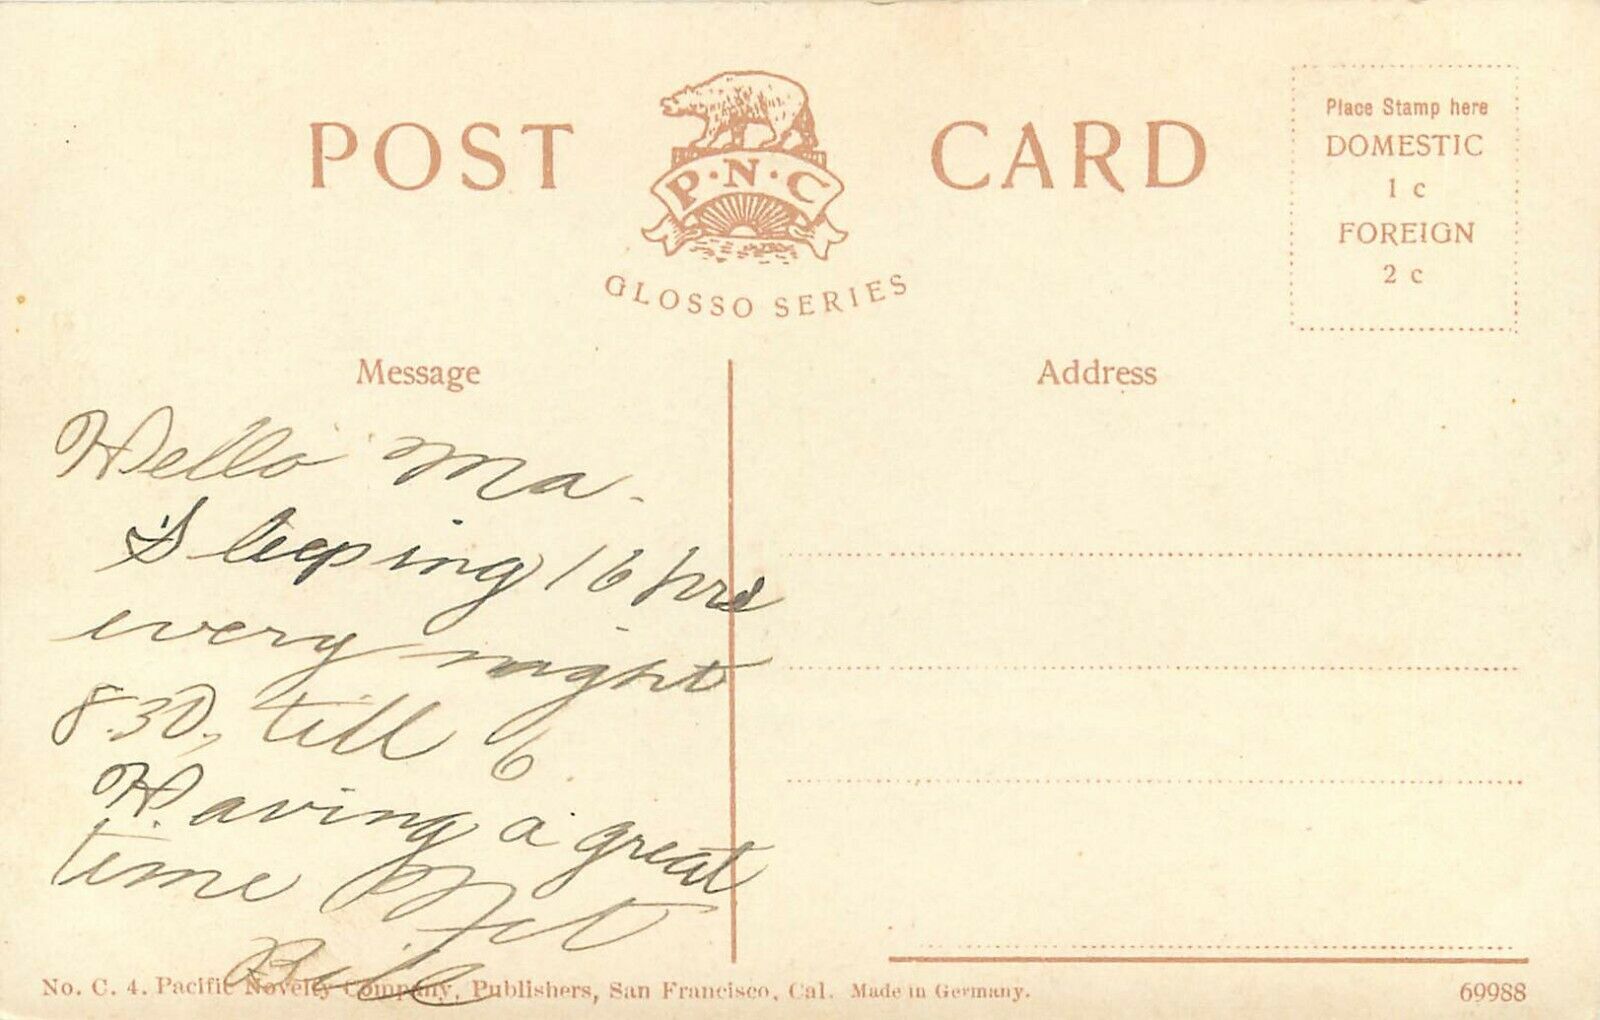 POST CARD
P·N·C
GLOSSO SERIES
Place Stamp here
DOMESTIC
1 c
FOREIGN
2 c
Message
Address
Hello Ma.
Sleeping 16 hrs
every night
8.30, till 6
Having a great
time
No. C. 4. Pacific Novelty Company, Publishers, San Francisco, Cal. Made in Germany.
69988